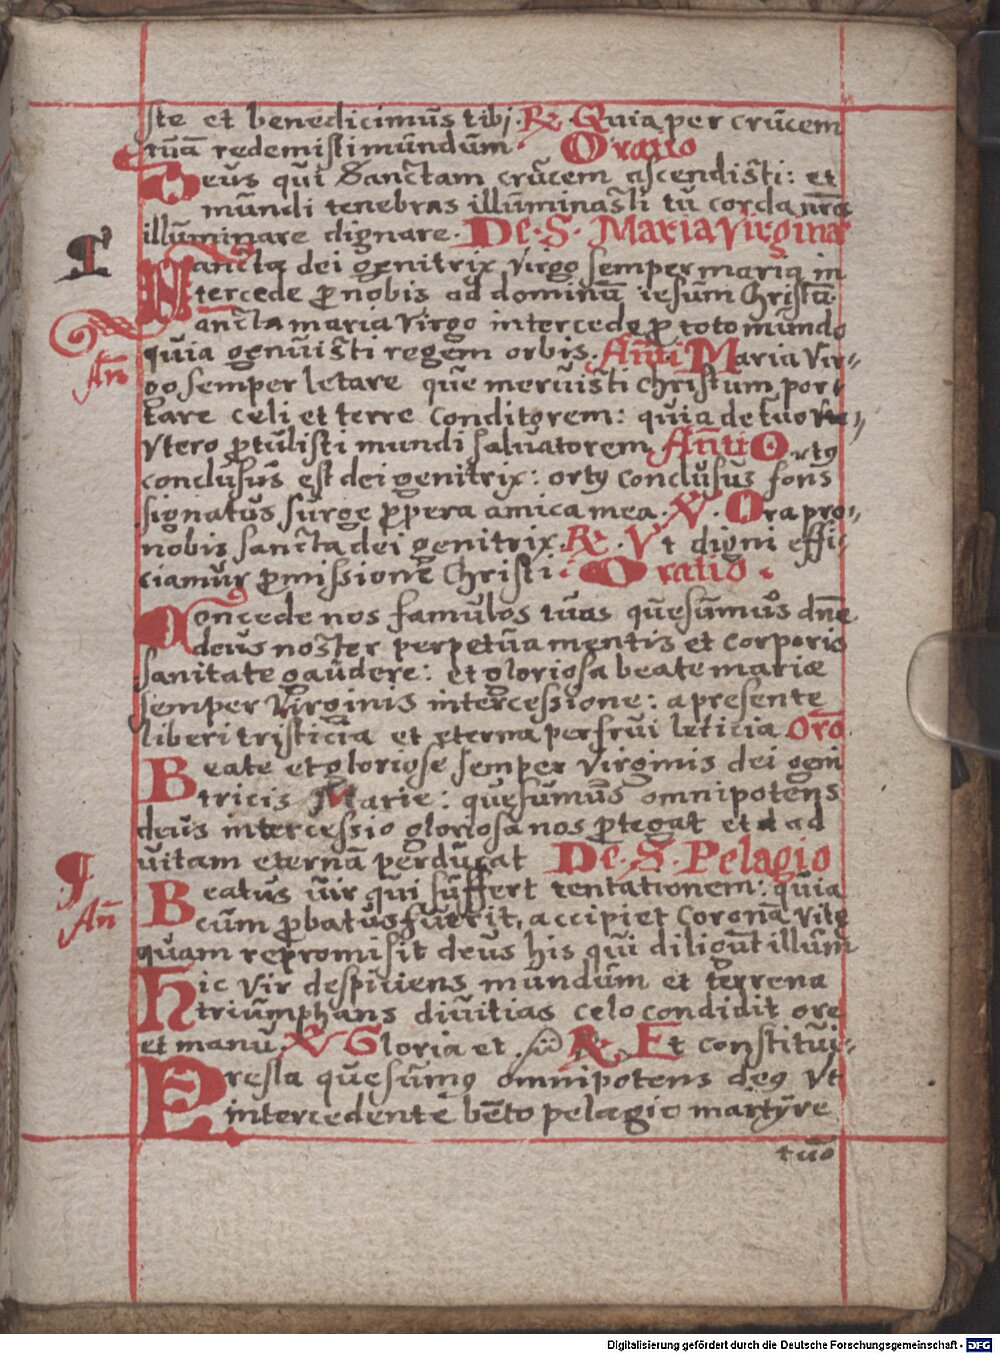 ste et benedicimus tibj. ℟ Quia per crucem
tuā redemisti mundum. Oratio
Deus qui Sanctam crucem ascendisti: et
mundi tenebras illuminasti tu corda nrā
illuminare dignare. De. S. Maria virgina
Sancta dei genitrix virgo semper maria in
tercede ꝓ nobis ad dominū iesum Christū.
An̄ Sancta maria virgo intercede ꝓ toto mundo
quia genuisti regem orbis. An̄ti Maria vir⸗
go semper letare que meruisti christum por⸗
tare celi et terre conditorem: quia de tuo
vtero ꝓtulisti mundi salvatorem An̄ti Ortꝰ
conclusus est dei genitrix: ortꝰ conclusus fons
signatus surge ꝓpera amica mea. ℣. Ora pro⸗
nobis sancta dei genitrix. ℟. Vt digni effi⸗
ciamur ꝓmissionē Christi: Oratio.
Concede nos famulos tuos quesumus dn̄e
deus noster perpetua mentis et corporis
sanitate gaudere: et gloriosa beate marie
semper Virginis intercessione: a presente
liberi tristicia et eterna perfrui leticia. Orō
Beate et gloriose semper virginis dei geni
tricis Marie: quesumus omnipotens
deus intercessio gloriosa nos ꝓtegat et ad
vitam eternā perducat De. S. Pelagio
An̄ Beatus vir qui suffert tentationem: quia
cum ꝓbatus fuerit, accipiet Coronā vite
quam repromisit deus his qui diligūt illum
Hic vir despiciens mundum et terrena
triumphans divitias celo condidit ore
et manu. ℣ Gloria et ℟. Et constitui⸗
Presta quesumꝰ omnipotens deꝰ vt
intercedente bēto pelagio martyre
tuo
Digitalisierung gefördert durch die Deutsche Forschungsgemeinschaft - DFG